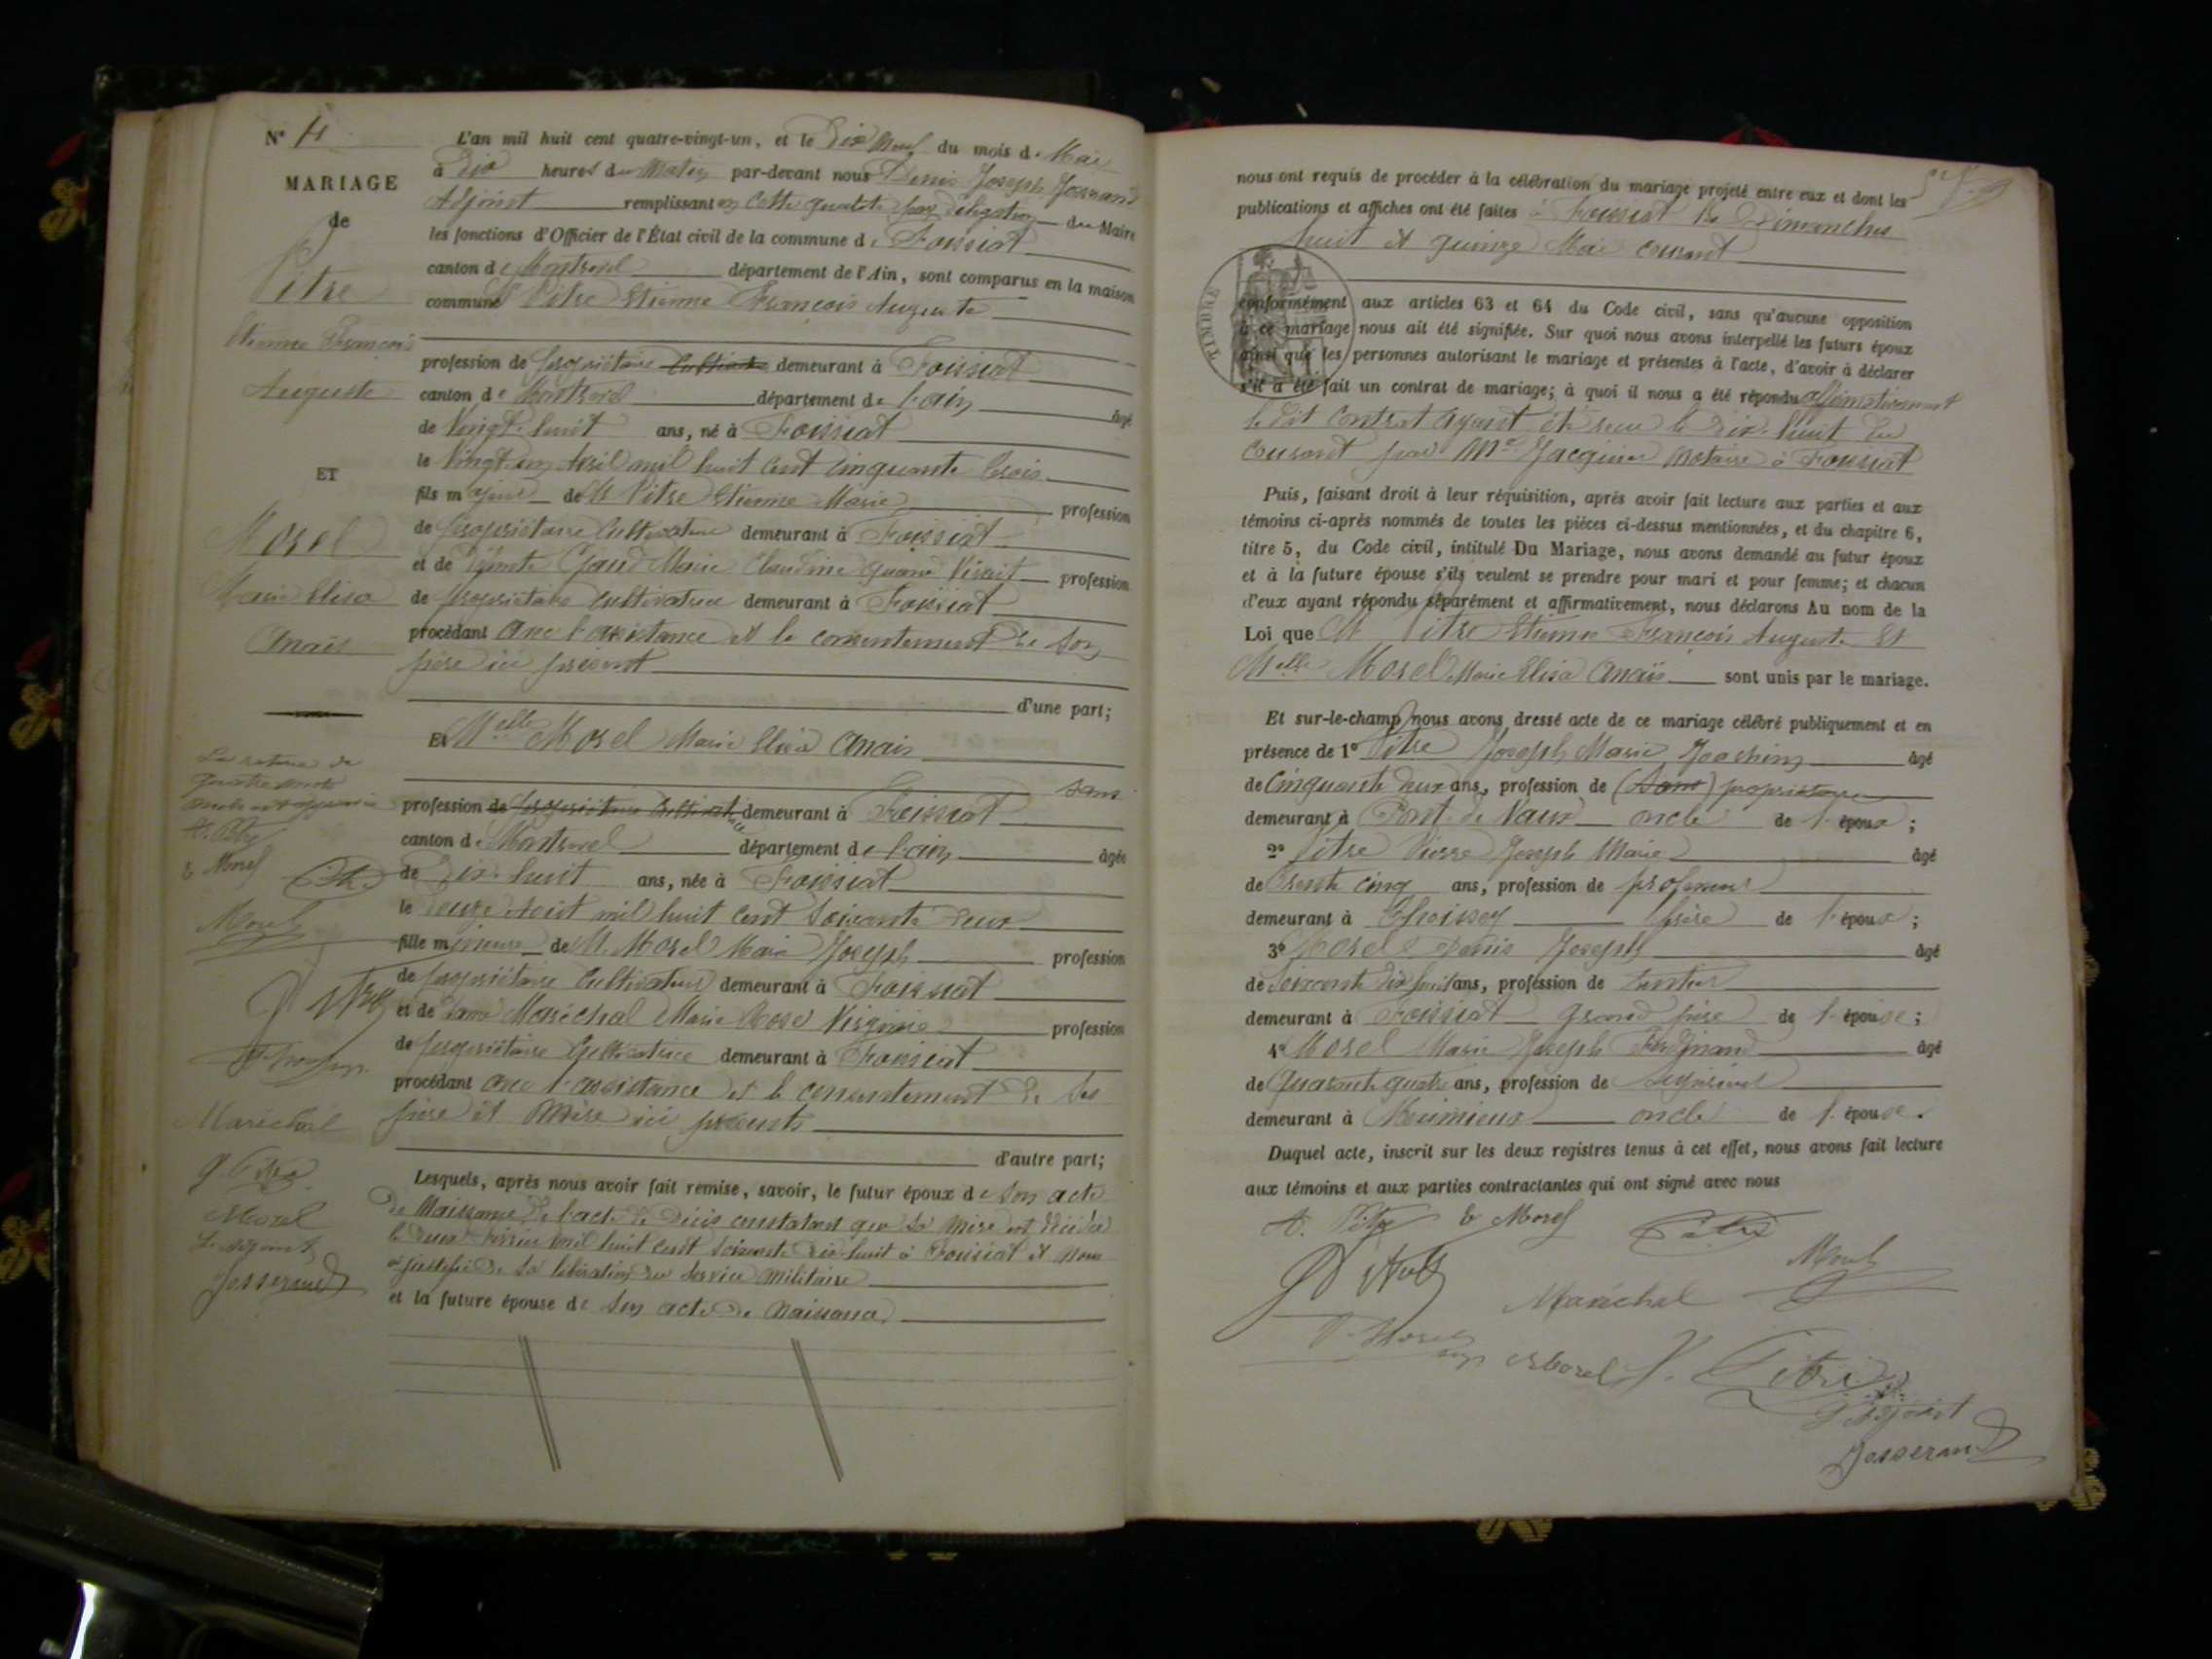 N° 11
MARIAGE
de
Pitre
Etienne François
Auguste
ET
Morel
Marie Elisa
Anaïs
La rature de
quatre mots
A. Pitre
E Morel
Morel
Maréchal
Morel
L'adjoint
Josserand
L'an mil huit cent quatre-vingt-un, et le Dix Neuf du mois de Mai
à Dix heures du Matin par-devant nous Denis Joseph Josserand
Adjoint remplissant en cette qualité par délégation du Maire
les fonctions d'Officier de l'État civil de la commune de Foissiat
canton de Montrevel département de l'Ain, sont comparus en la maison
commune Mr Pitre Etienne François Auguste
profession de propriétaire cultivateur demeurant à Foissiat
canton de Montrevel département de l'ain âgé
de Vingt huit ans, né à Foissiat
le Vingt un Avril mil huit cent cinquante trois
fils majeur de Mr Pitre Etienne Marie profession
de propriétaire cultivateur demeurant à Foissiat
et de Défunte Marie Claudine quand vivait profession
de propriétaire cultivatrice demeurant à Foissiat
procédant avec l'assistance et le consentement de son
père ici présent
d'une part;
Et Melle Morel Marie Elisa Anaïs
sans
profession de propriétaire cultivatrice demeurant à Foissiat
canton de Montrevel département de l'ain âgée
de Dix huit ans, née à Foissiat
le douze Aout mil huit cent soixante deux
fille mineure de Mr Morel Marie Joseph profession
de propriétaire cultivateur demeurant à Foissiat
et de Dame Maréchal Marie Rose Virginie profession
de propriétaire cultivatrice demeurant à Foissiat
procédant avec l'assistance et le consentement de ses
père et mère ici présents
d'autre part;
Lesquels, après nous avoir fait remise, savoir, le futur époux de son acte
de Naissance de l'acte de Décès constatant que sa mère est décédée
le deux mil huit cent soixante dix huit à Foissiat et nous
a justifié de sa libération du service militaire
et la future épouse de son acte de naissance
nous ont requis de procéder à la célébration du mariage projeté entre eux et dont les
publications et affiches ont été faites à Foissiat les Dimanches
huit et quinze Mai courant
TIMBRE
conformément aux articles 63 et 64 du Code civil, sans qu'aucune opposition
à ce mariage nous ait été signifiée. Sur quoi nous avons interpellé les futurs époux
ainsi que les personnes autorisant le mariage et présentes à l'acte, d'avoir à déclarer
s'il a été fait un contrat de mariage; à quoi il nous a été répondu affirmativement
le dit contrat ayant été reçu le dix huit du
courant par Me Jacquier notaire à Foissiat
Puis, faisant droit à leur réquisition, après avoir fait lecture aux parties et aux
témoins ci-après nommés de toutes les pièces ci-dessus mentionnées, et du chapitre 6,
titre 5, du Code civil, intitulé Du Mariage, nous avons demandé au futur époux
et à la future épouse s'ils veulent se prendre pour mari et pour femme; et chacun
d'eux ayant répondu séparément et affirmativement, nous déclarons Au nom de la
Loi que Mr Pitre Etienne François Auguste Et
Melle Morel Marie Elisa Anaïs sont unis par le mariage.
Et sur-le-champ nous avons dressé acte de ce mariage célébré publiquement et en
présence de 1° Pitre Joseph Marie Joachim âgé
de Cinquante deux ans, profession de (Sans) propriétaire
demeurant à Pont de Vaux oncle de l'époux;
2° Pitre Pierre Joseph Marie âgé
de Trente cinq ans, profession de professeur
demeurant à Thoissey frère de l'époux;
3° Morel Denis Joseph âgé
de Soixante dix huit ans, profession de rentier
demeurant à Foissiat grand père de l'épouse;
4° Morel Marie Joseph Ferdinand âgé
de Quarante quatre ans, profession de
demeurant à Meximieux oncle de l'épouse.
Duquel acte, inscrit sur les deux registres tenus à cet effet, nous avons fait lecture
aux témoins et aux parties contractantes qui ont signé avec nous
A. Pitre E Morel Pitre
Morel
Maréchal
D. Morel
Morel J. Pitre
L'adjoint
Josserand